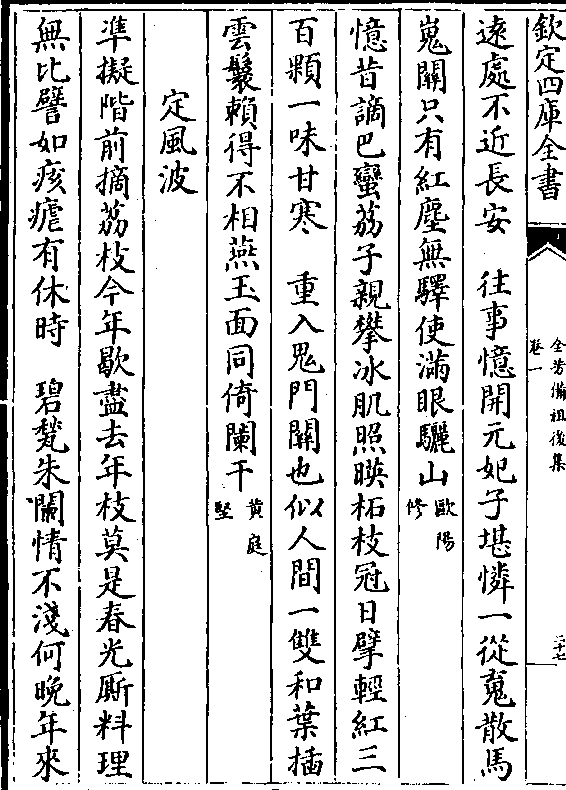 欽定四庫全書
全芳備祖後集
卷一
二十七
遠處不近長安　往事憶開元妃子堪憐一從䰟散馬
嵬關只有紅塵無驛使滿眼驪山歐陽修
憶昔謫巴蠻荔子親攀冰肌照暎柘枝冠日擘輕紅三
百顆一味甘寒　重入鬼門關也似人間一雙和葉插
雲鬟賴得不相燕玉面同倚闌干黄庭堅
定風波
凖擬階前摘荔枝今年歇盡去年枝莫是春光厮料理
無比譬如痎瘧有休時　碧甃朱闌情不淺何晩年來